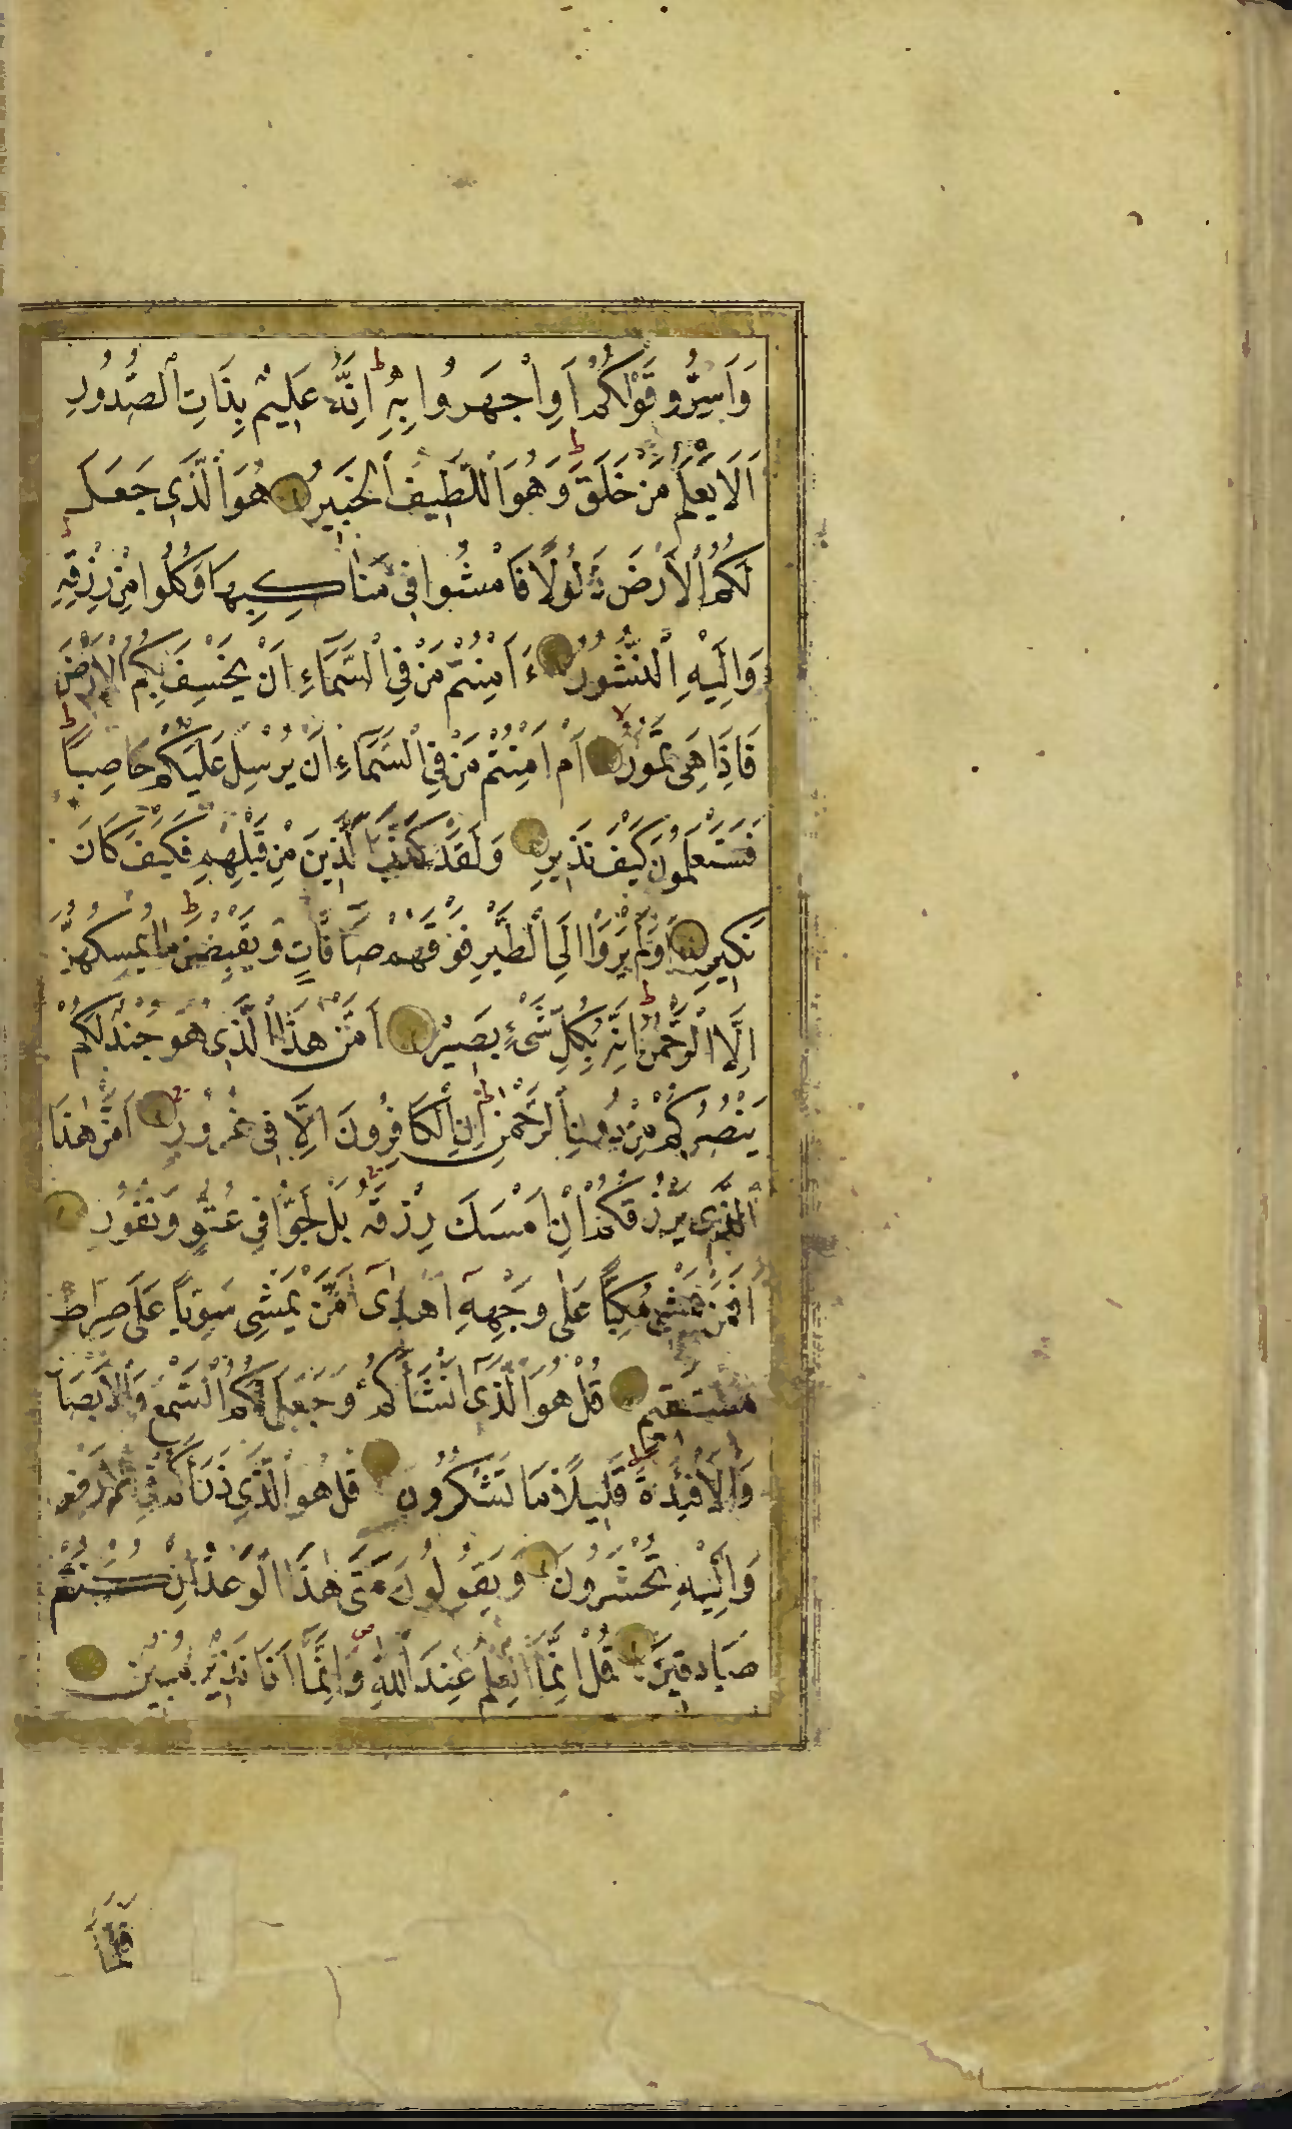 وَاَسِرُّو قَوْلَكُمْ اَوِاجْهَرُوا بِهِ ط اِنَّهُ عَلِيمٌ بِذَاتِ الصُّدُورِ
اَلَا يَعْلَمُ مَنْ خَلَقَ ط وَهُوَ اللَّطِيفُ الْخَبِيرُ هُوَ الَّذِى جَعَلَ
لَكُمُ الْاَرْضَ ذَلُولًا فَامْشُوا فِى مَنَاكِبِهَا وَكُلُوا مِنْ رِزْقِهِ ط
وَاِلَيْهِ النُّشُورُ ءَاَمِنْتُمْ مَنْ فِى السَّمَاءِ اَنْ يَخْسِفَ بِكُمُ الْاَرْضَ
فَاِذَا هِىَ تَمُورُ لا اَمْ اَمِنْتُمْ مَنْ فِى السَّمَاءِ اَنْ يُرْسِلَ عَلَيْكُمْ حَاصِبًا ط
فَسَتَعْلَمُونَ كَيْفَ نَذِيرِ وَلَقَدْ كَذَّبَ الَّذِينَ مِنْ قَبْلِهِمْ فَكَيْفَ كَانَ
نَكِيرِ اَوَلَمْ يَرَوْا اِلَى الطَّيْرِ فَوْقَهُمْ صَافَّاتٍ وَيَقْبِضْنَ ط مَا يُمْسِكُهُنَّ
اِلَّا الرَّحْمٰنُ ط اِنَّهُ بِكُلِّ شَىْءٍ بَصِيرٌ اَمَّنْ هٰذَا الَّذِى هُوَ جُنْدٌ لَكُمْ
يَنْصُرُكُمْ مِنْ دُونِ الرَّحْمٰنِ ط اِنِ الْكَافِرُونَ اِلَّا فِى غُرُورٍ اَمَّنْ هٰذَا
الَّذِى يَرْزُقُكُمْ اِنْ اَمْسَكَ رِزْقَهُ بَلْ لَجُّوا فِى عُتُوٍّ وَنُفُورٍ
اَفَمَنْ يَمْشِى مُكِبًّا عَلٰى وَجْهِهِ اَهْدٰى اَمَّنْ يَمْشِى سَوِيًّا عَلٰى صِرَاطٍ
مُسْتَقِيمٍ قُلْ هُوَ الَّذِى اَنْشَاَكُمْ وَجَعَلَ لَكُمُ السَّمْعَ وَالْاَبْصَا
وَالْاَفْئِدَةَ ط قَلِيلًا مَا تَشْكُرُونَ قُلْ هُوَ الَّذِى ذَرَاَكُمْ فِى الْاَرْضِ
وَاِلَيْهِ تُحْشَرُونَ وَيَقُولُونَ مَتٰى هٰذَا الْوَعْدُ اِنْ كُنْتُمْ
صَادِقِينَ قُلْ اِنَّمَا الْعِلْمُ عِنْدَ اللّٰهِ وَاِنَّمَا اَنَا نَذِيرٌ مُبِينٌ
فَلَمَّا